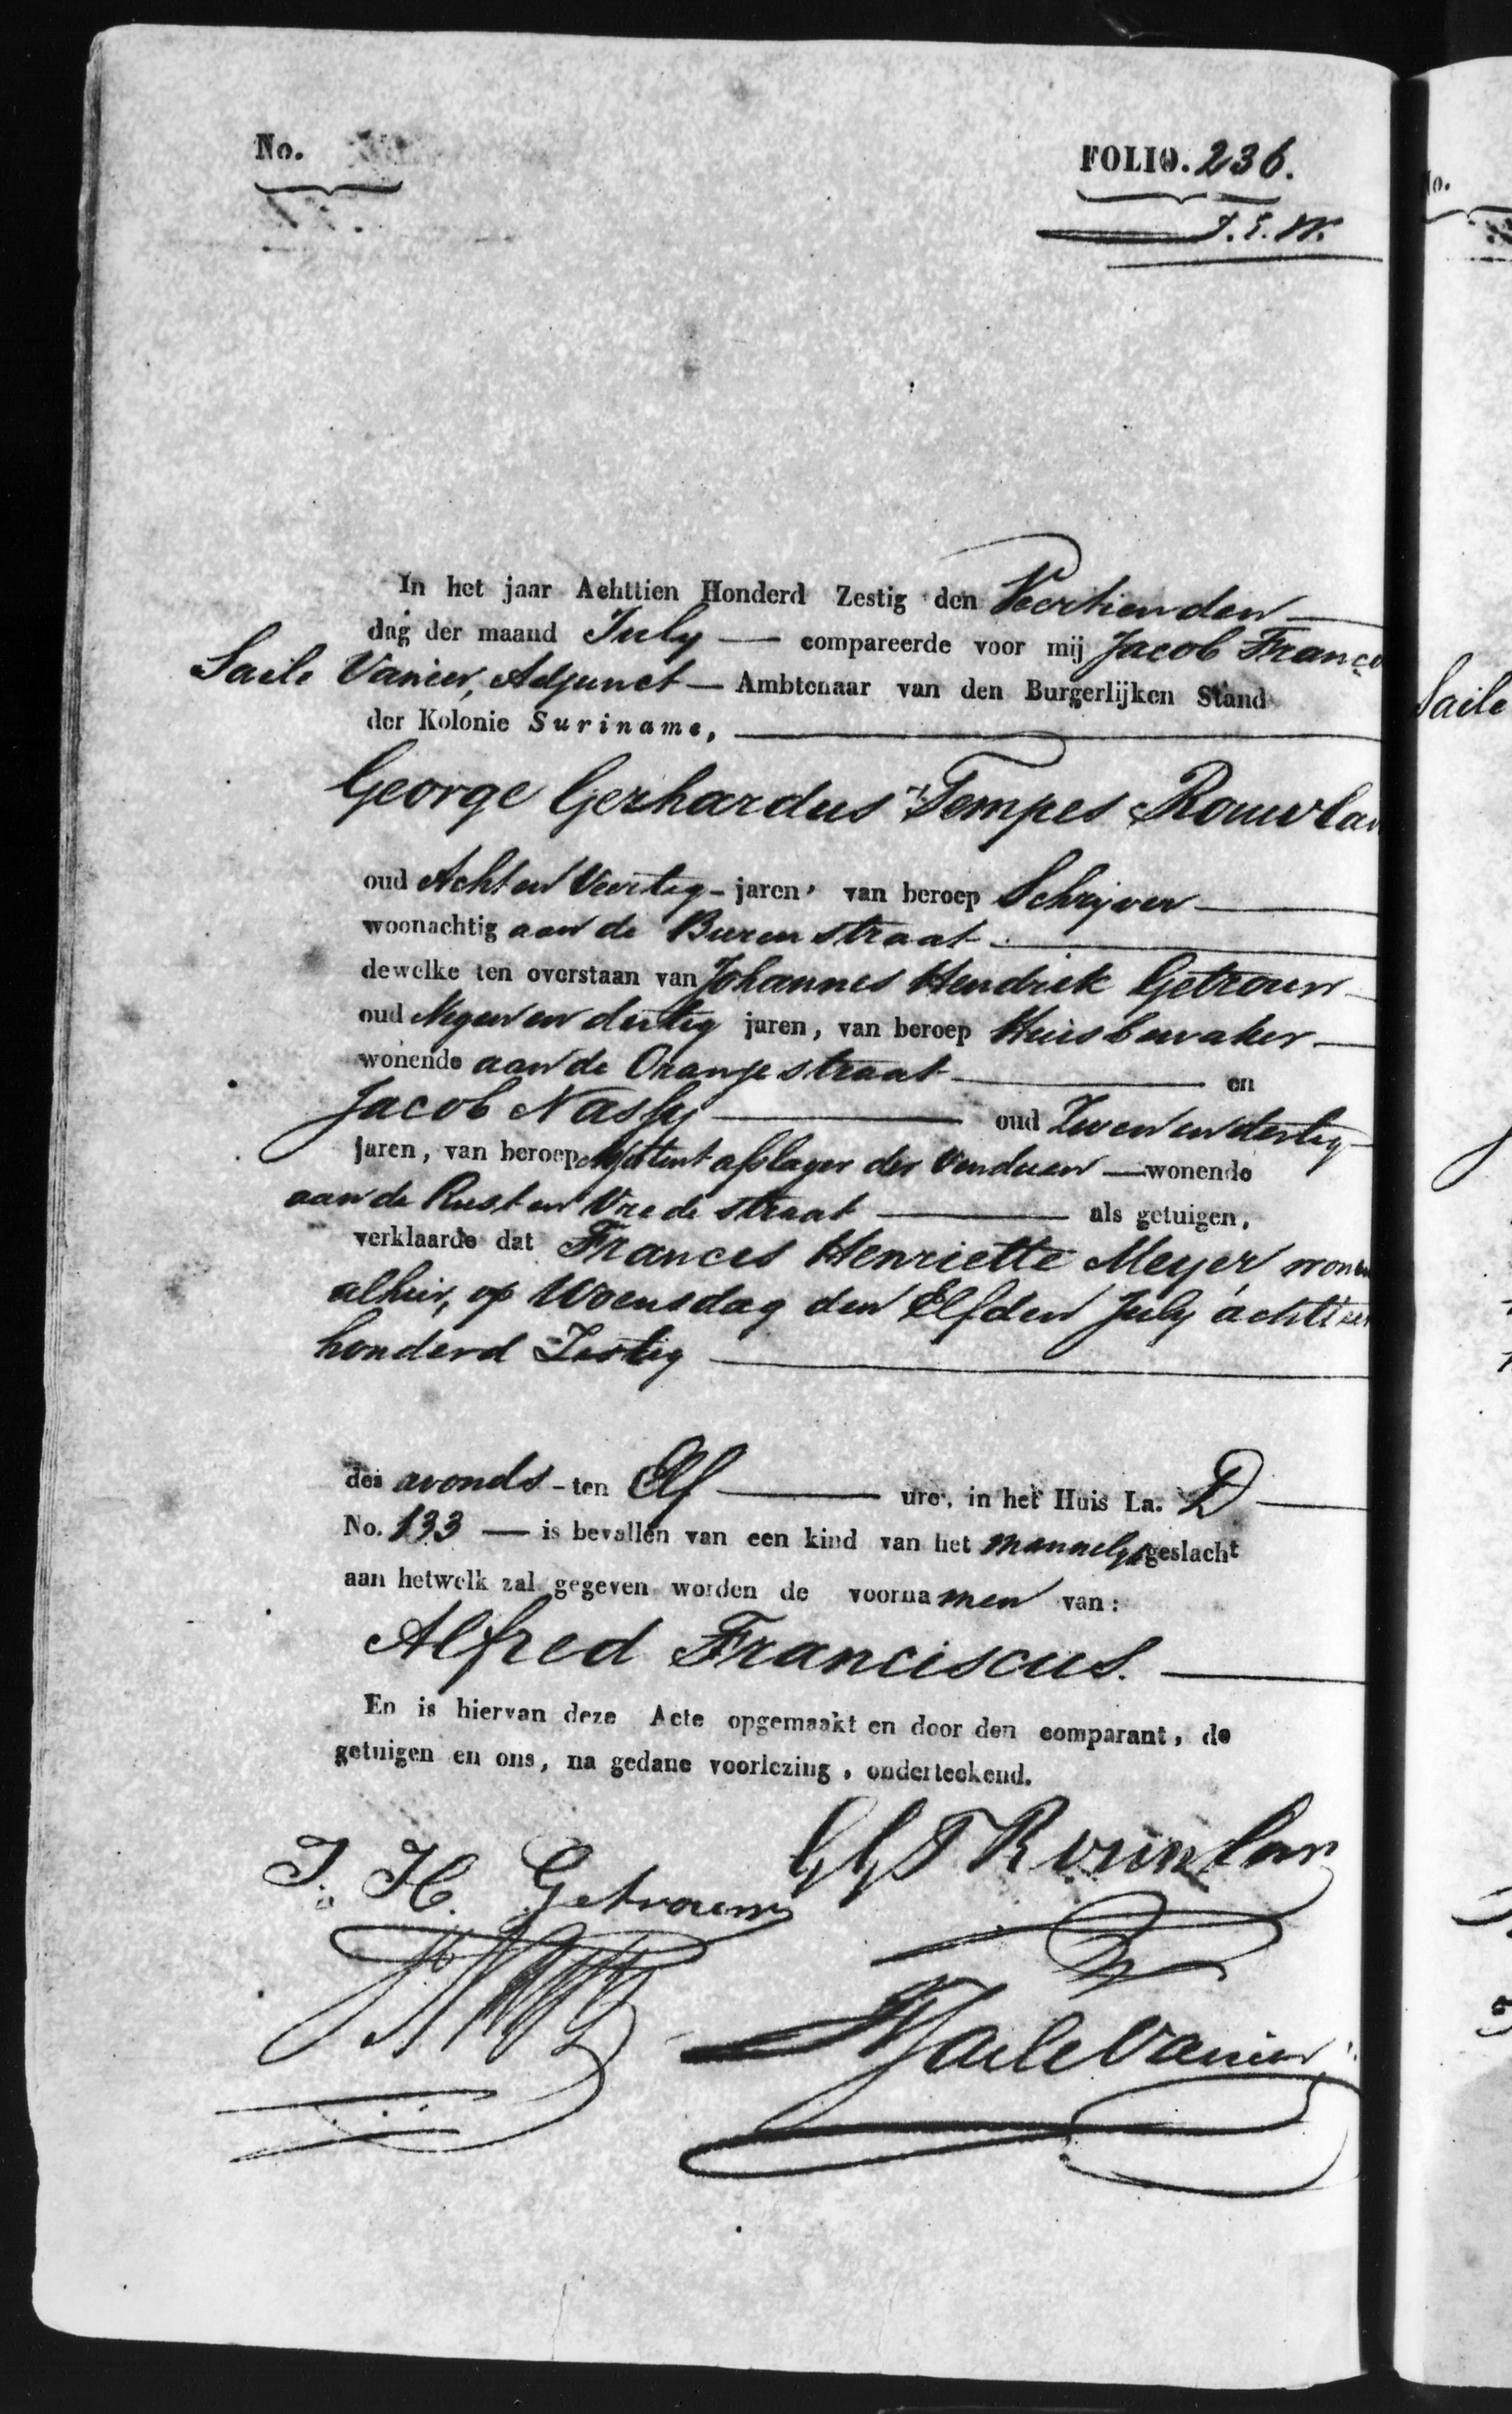 No.
FOLIO. 236.
In het jaar Achttien Honderd Zestig den Veertienden
dag der maand July — compareerde voor mij Jacob
Saile Vanier, Adjunct — Ambtenaar van den Burgerlijken Stand
der Kolonie Suriname,
George Gerhardus Tempes
oud Acht en Veertig - jaren, van beroep Schrijver
woonachtig aan de Burenstraat
dewelke ten overstaan van Johannes Hendrik Getrouw
oud Negen en dertig jaren, van beroep Huisbewaker
wonende aan de Oranjestraat — en
Jacob Nassy — oud Twee en dertig
jaren, van beroep adsistent afslager der Venduen — wonende
aan de Rust en Vrede straat — als getuigen,
verklaarde dat Frances Henriette Meyer
alhier, op Woensdag den Elfden July
honderd Zestig
des avonds - ten Elf — ure, in het Huis La. D
No. 133 — is bevallen van een kind van het mannelijk geslacht
aan hetwelk zal gegeven worden de voornamen van:
Alfred Franciscus.
En is hiervan deze Acte opgemaakt en door den comparant, de
getuigen en ons, na gedane voorlezing, onderteekend.
G G T Rouwlan
J. H. Getrouw
Saile Vanier
Saile